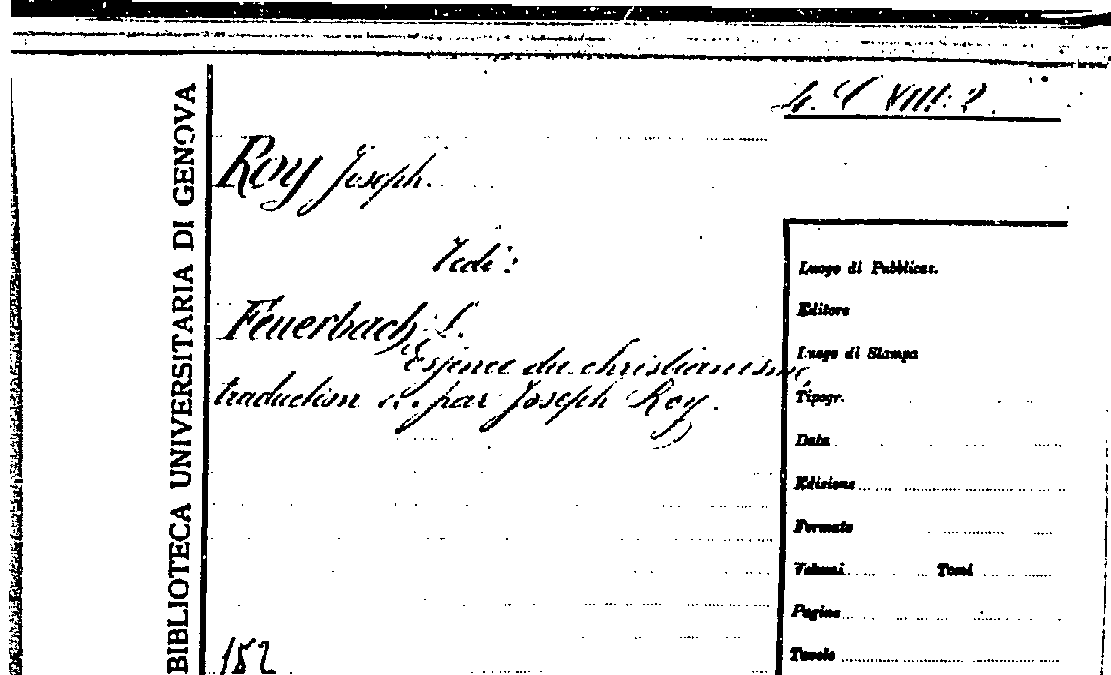 BIBLIOTECA UNIVERSITARIA DI GENOVA
4. VIII. 2.
Roy Joseph.
Vedi:
Feuerbach, L.
Essence du christianisme,
traduction par Joseph Roy.
152
Luogo di Pubblicaz.
Editore
Luogo di Stampa
Tipogr.
Data
Edizione
Formato
Volumi Tomi
Pagine
Tavole